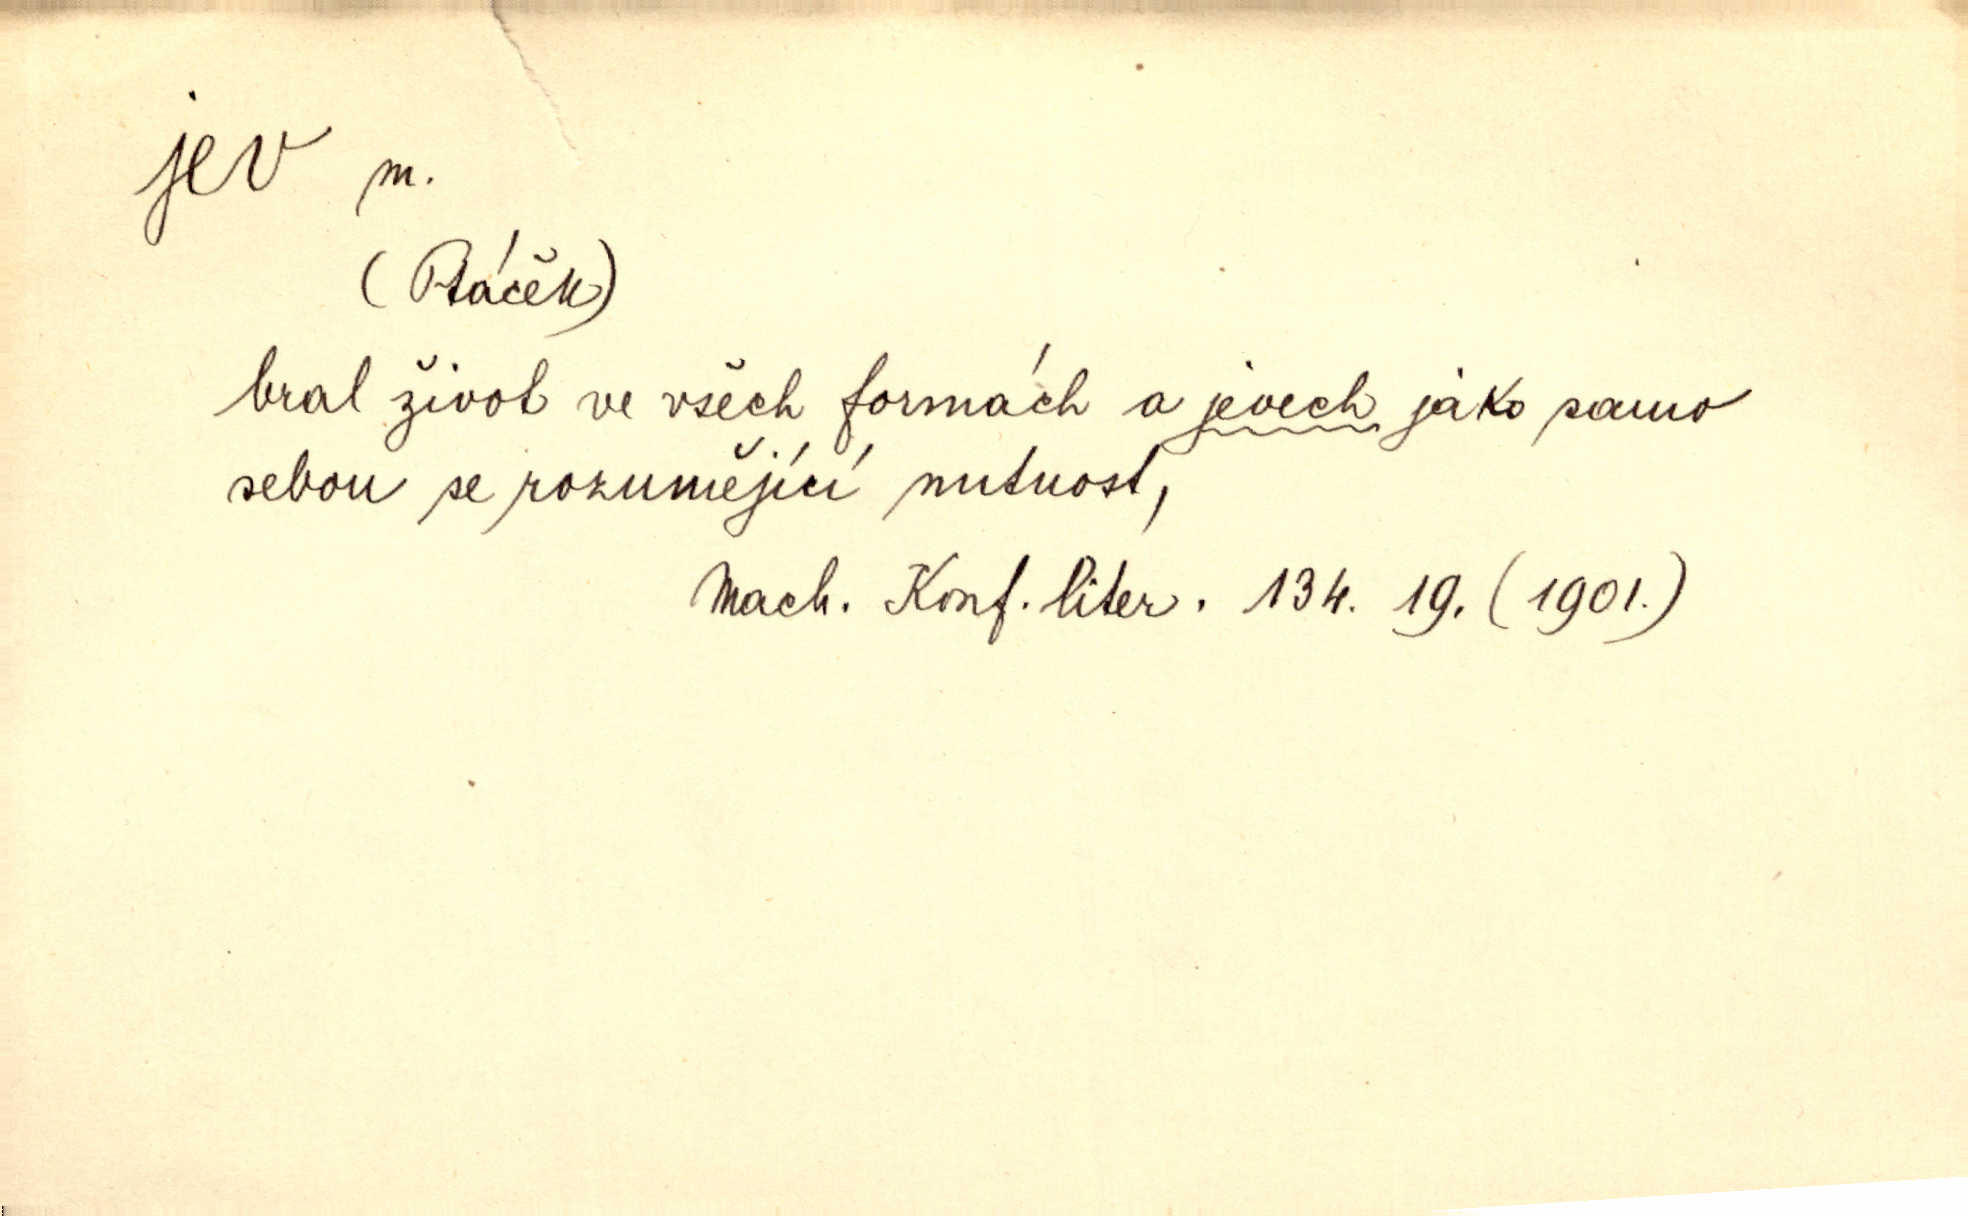 jev m.
(Ptáček)
bral život ve všech formách a jevech jako samo
sebou se rozumějící nutnost,
Mach. Konf. liter. 134. 19. (1901.)